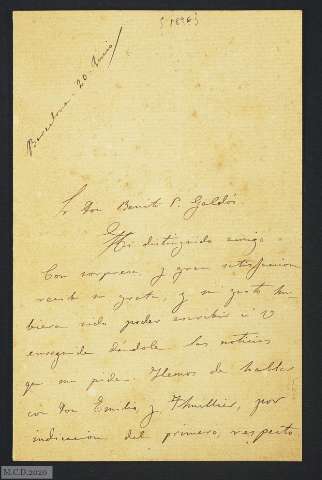 [1896]
Barcelona - 20 Junio
Sr Don Benito P. Galdós
Mi distinguido amigo
Con sorpresa y gran satisfaccion
recibí su grata, y mi gusto hu-
biera sido poder escribir á V
enseguida dandole las noticias
que me pide. Hemos de hablar
con Don Emilio y Thuillier, por
indicacion del primero, respecto
M.C.D.2020